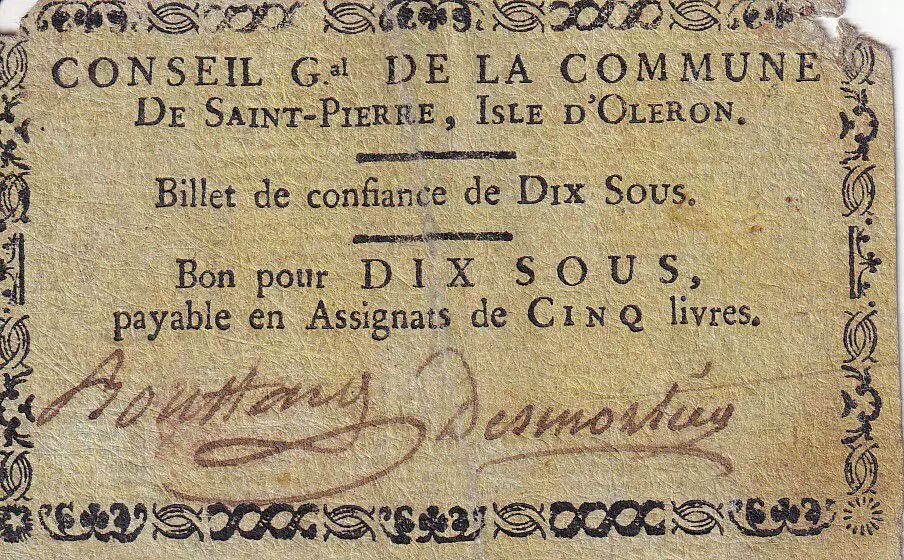 CONSEIL G.al DE LA COMMUNE
DE SAINT-PIERRE, ISLE D'OLERON.
Billet de confiance de DIX SOUS.
Bon pour DIX SOUS,
payable en Assignats de CINQ livres.